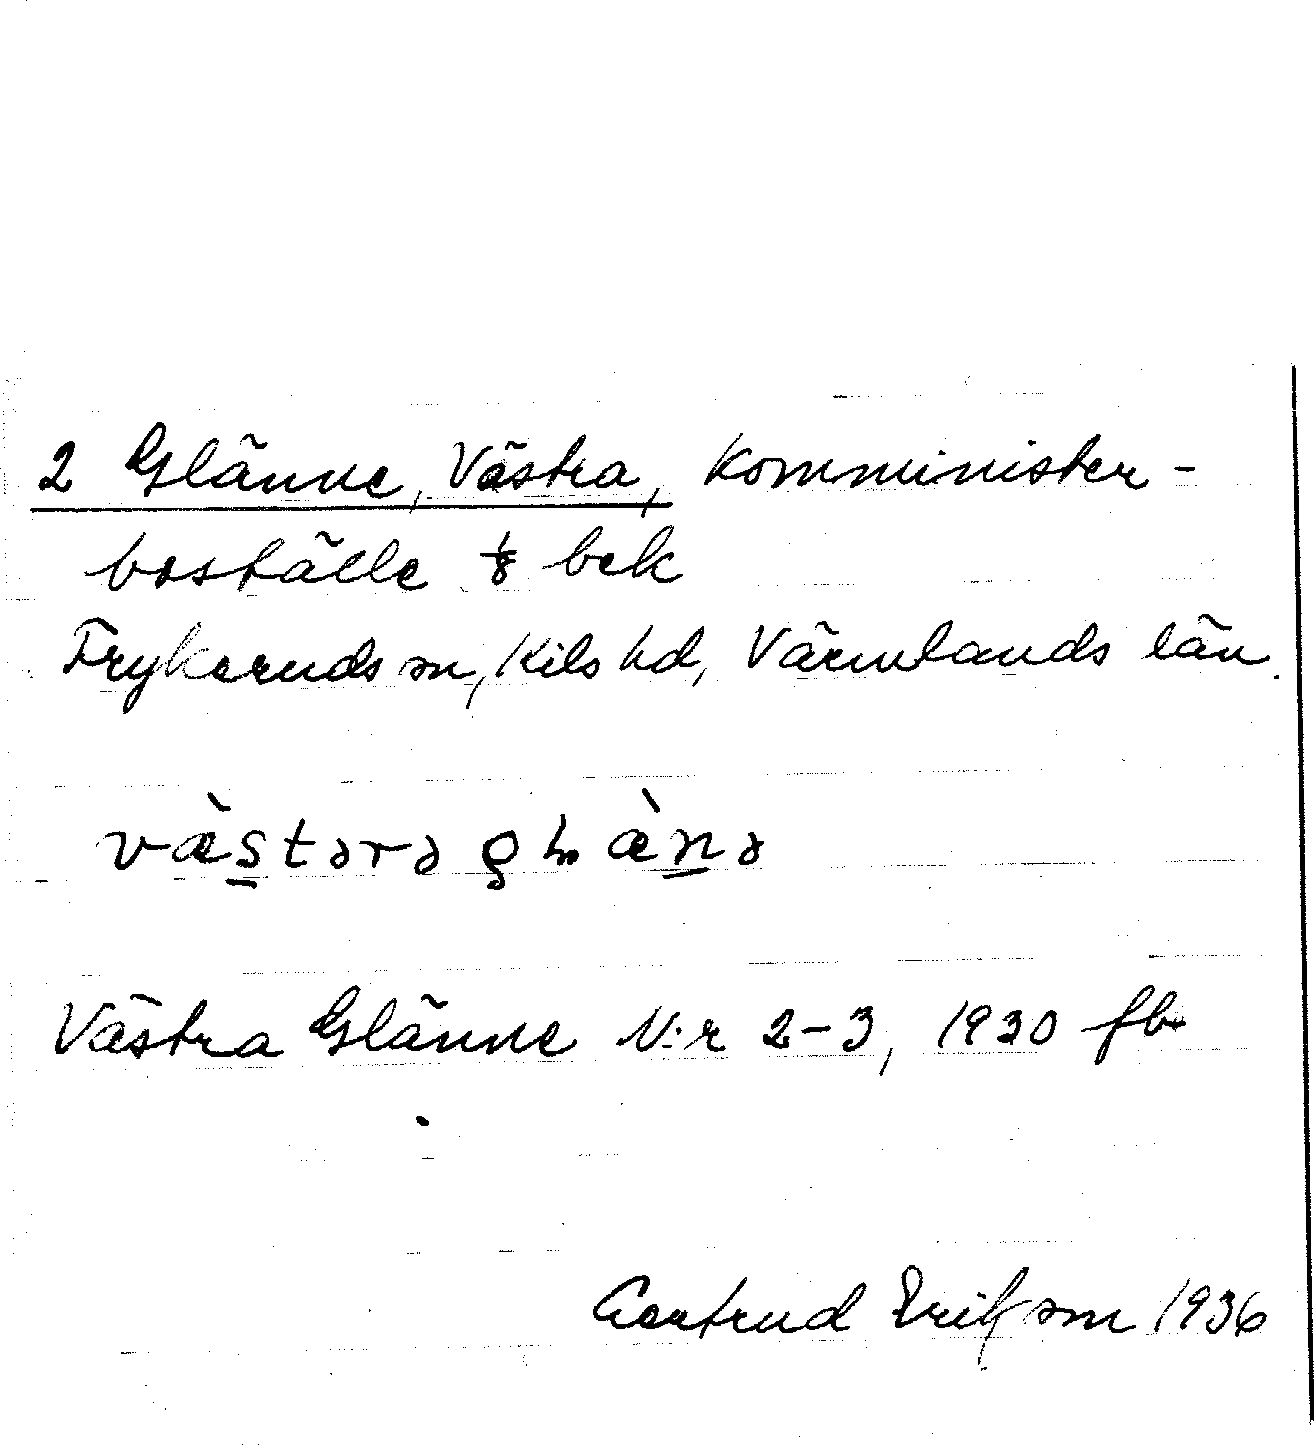 2 Glänne, Västra, Komminister-
boställe 1/8 bek
Frykeruds sn, Kils hd, Värmlands län.
Västra Glänne N:r 2-3, 1930 fb
Gertrud Erikson 1936